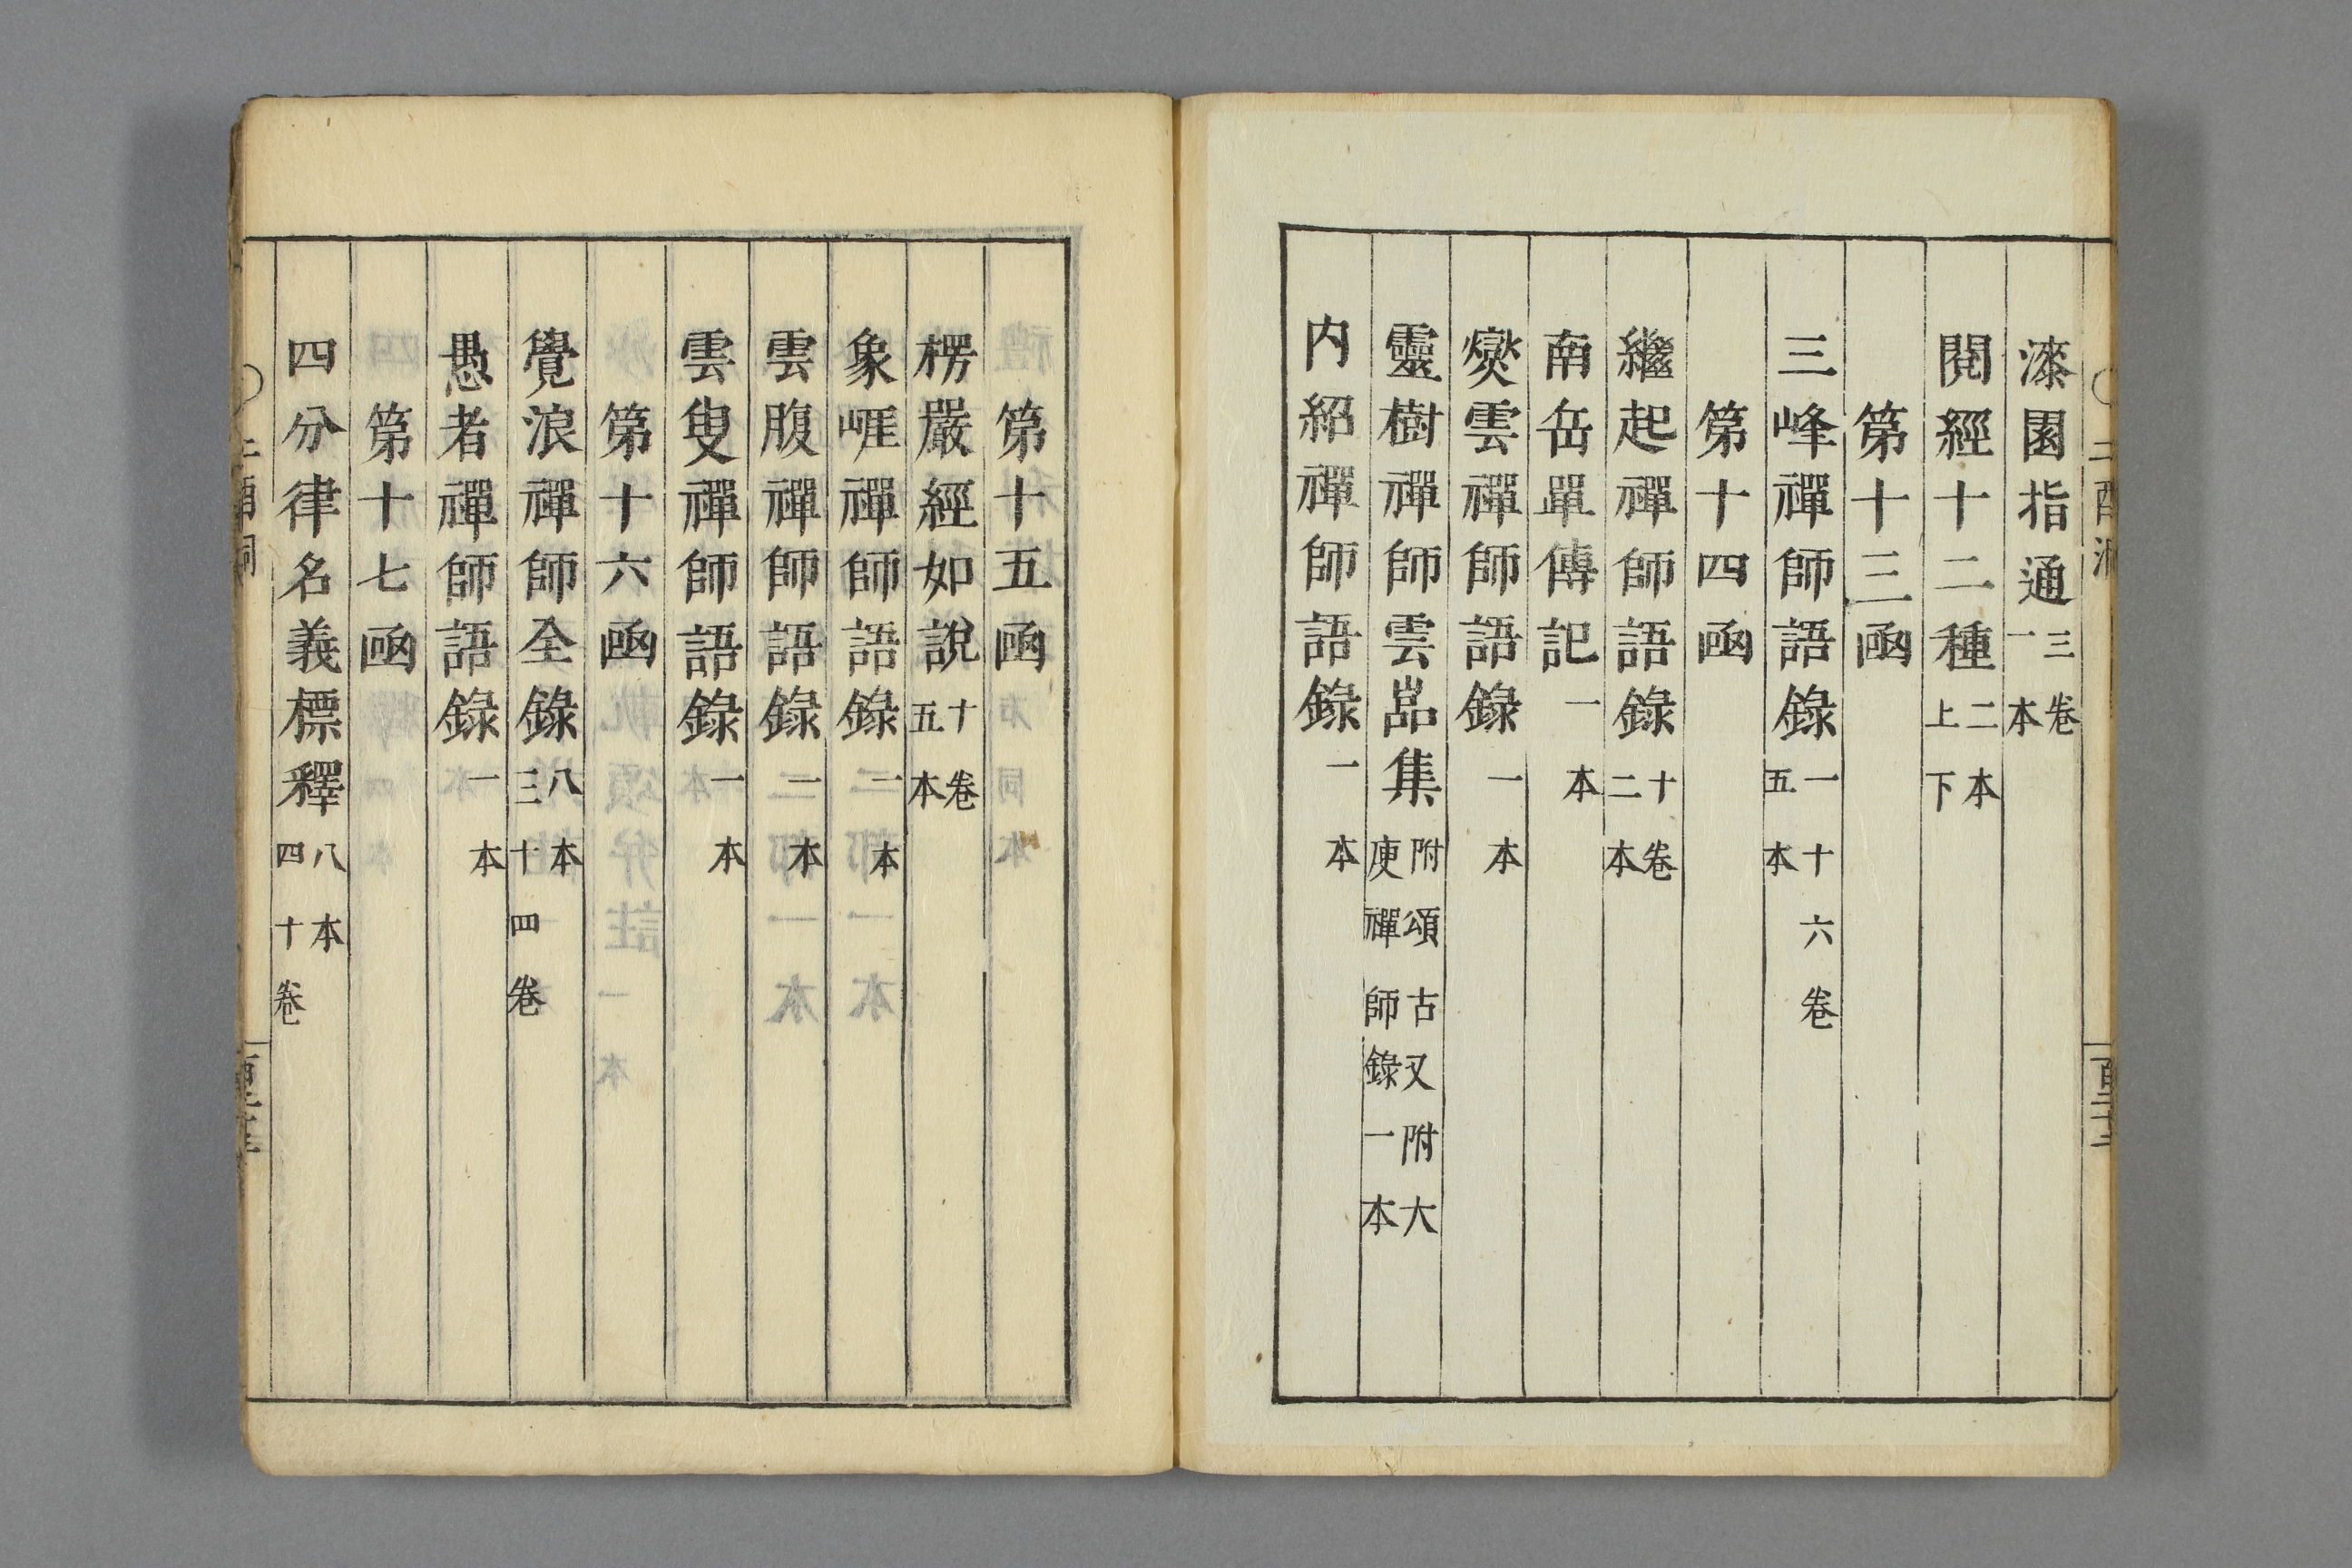 漆園指通三卷一本
閱經十二種二本上下
第十三函
三峰禪師語錄一十六卷五本
第十四函
繼起禪師語錄十卷二本
南岳單傳記一本
燠雲禪師語錄一本
靈樹禪師雲嵒集附頌古又附大庾禪師錄一本
內紹禪師語錄一本
第十五函
楞嚴經如說十卷五本
象崕禪師語錄一本
雲腹禪師語錄一本
雲叟禪師語錄一本
第十六函
覺浪禪師全錄八本三十四卷
愚者禪師語錄一本
第十七函
四分律名義標釋八本四十卷